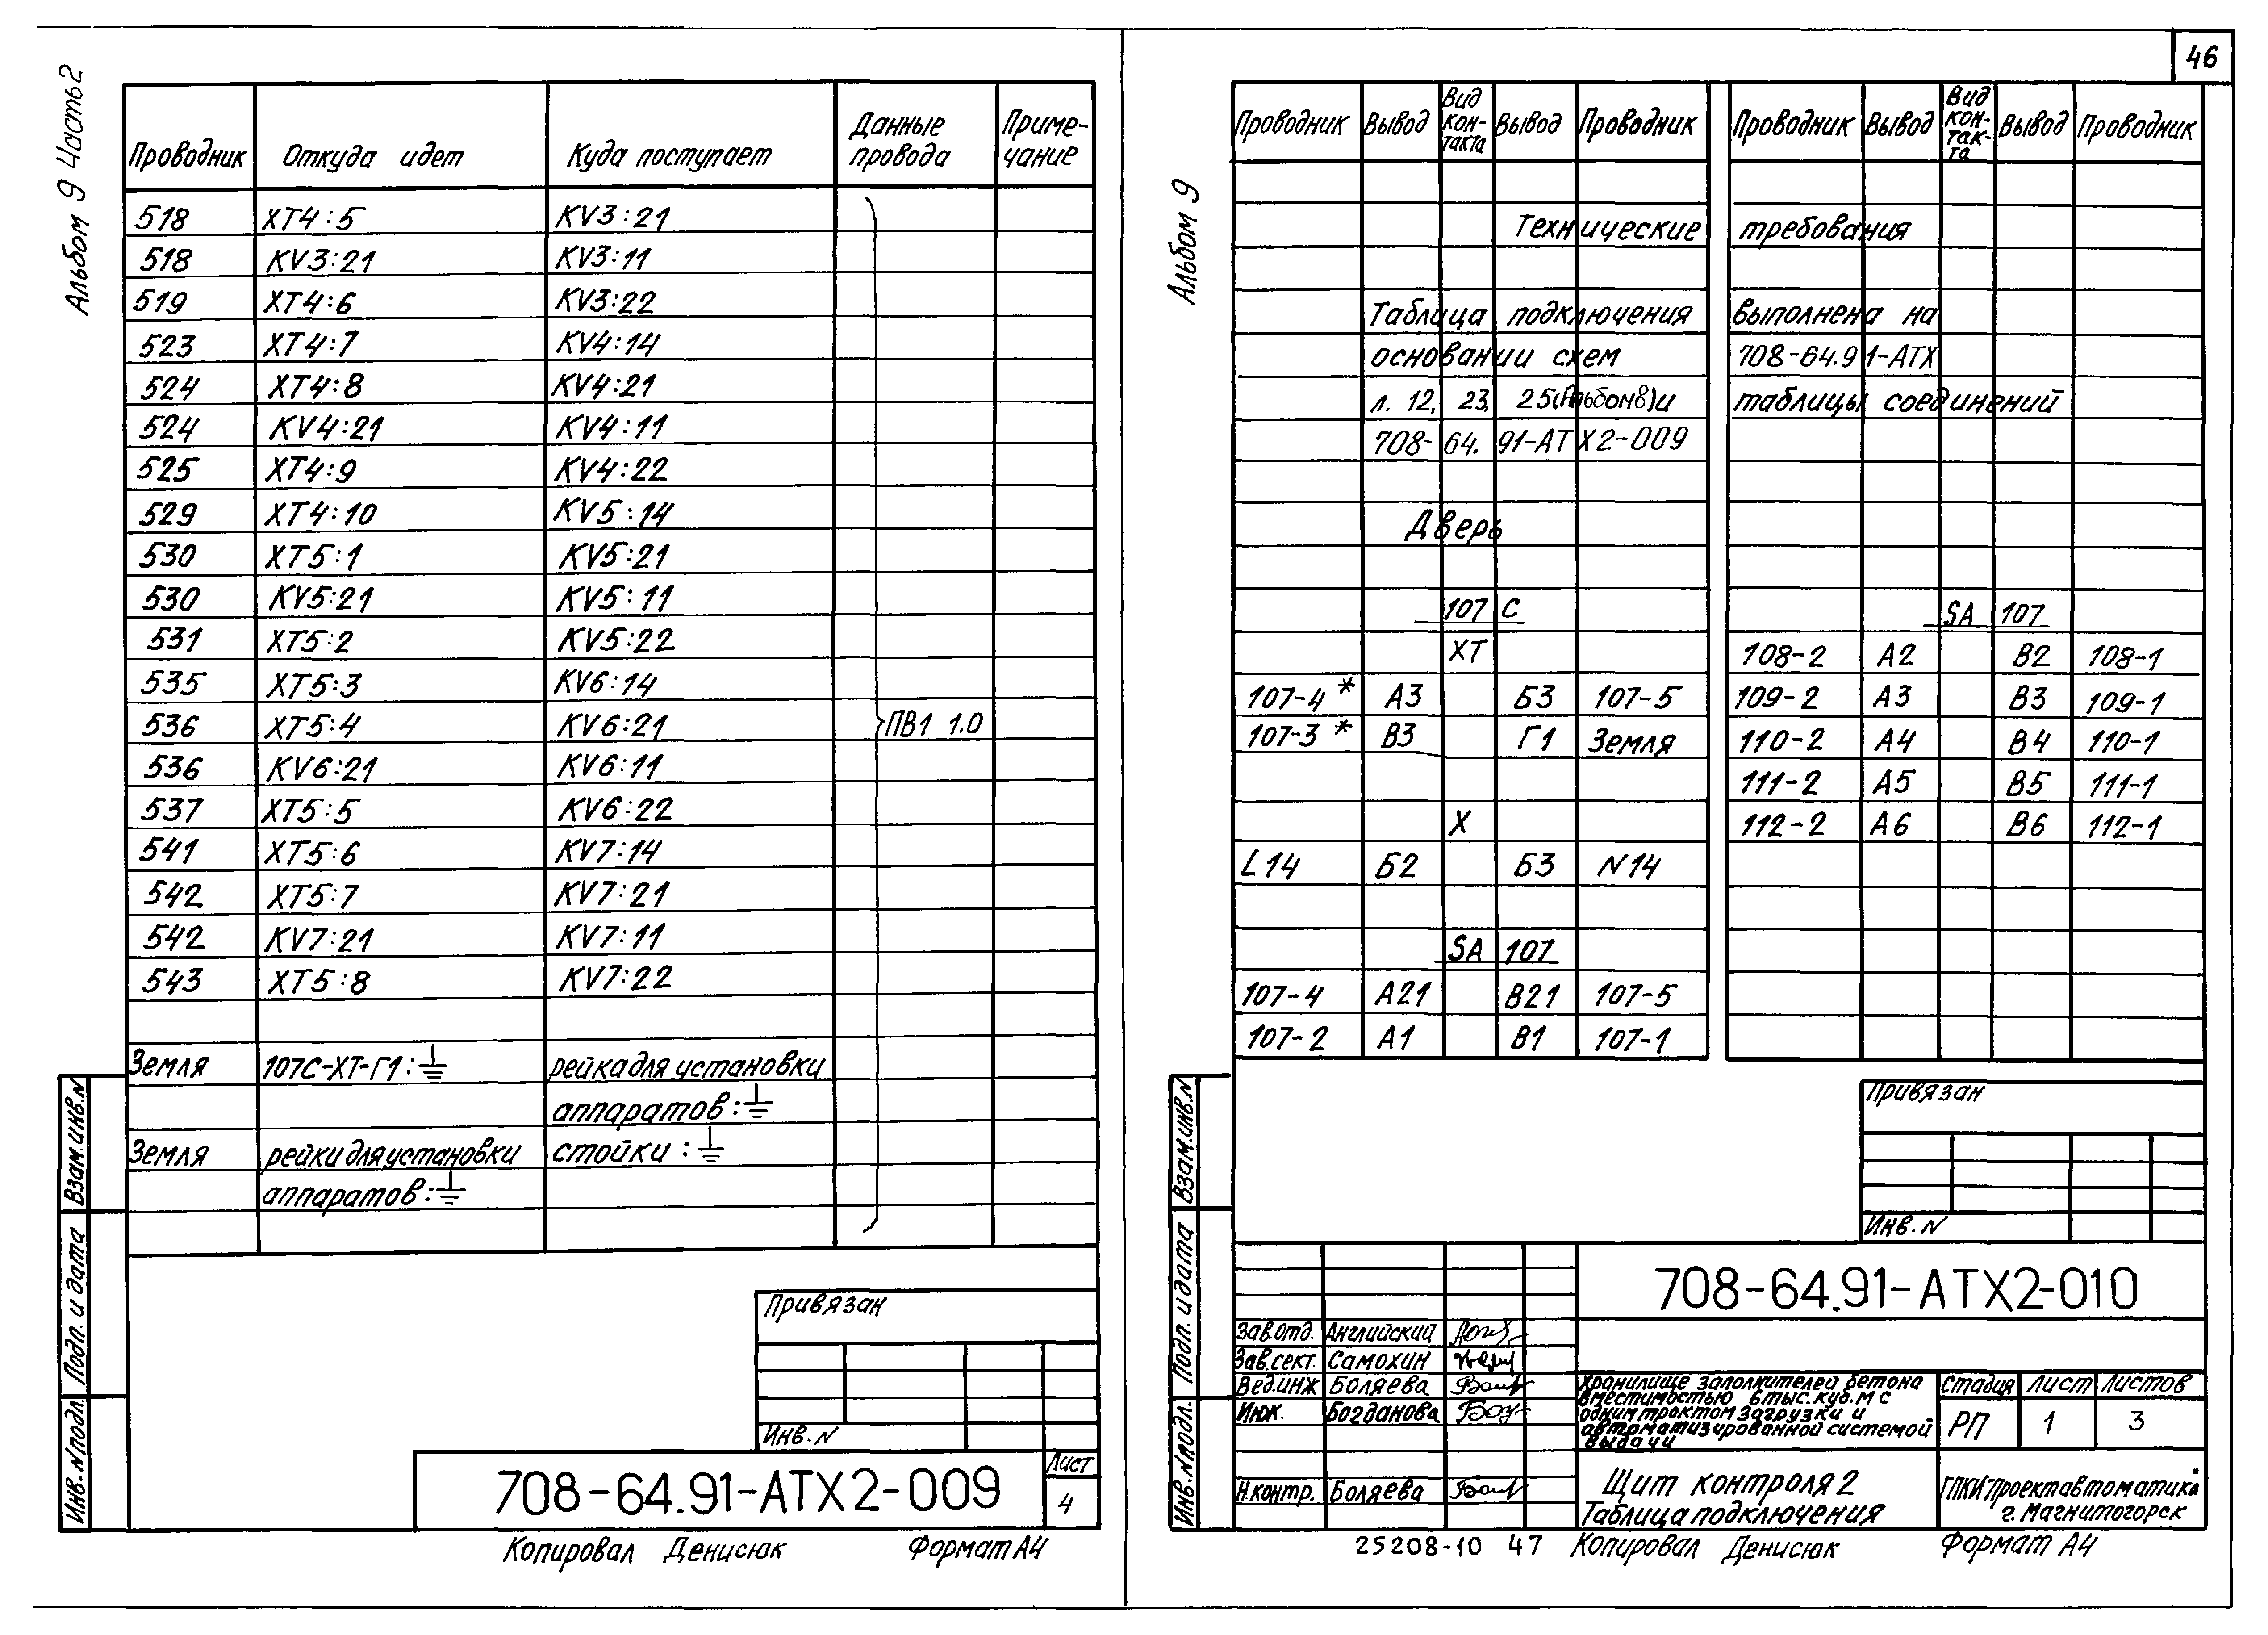 46
Альбом 9 Часть 2
Проводник Откуда идет Куда поступает Данные провода Приме-чание
518 XT4:5 KV3:21
518 KV3:21 KV3:11
519 XT4:6 KV3:22
523 XT4:7 KV4:14
524 XT4:8 KV4:21
524 KV4:21 KV4:11
525 XT4:9 KV4:22
529 XT4:10 KV5:14
530 XT5:1 KV5:21
530 KV5:21 KV5:11
531 XT5:2 KV5:22
535 XT5:3 KV6:14
536 XT5:4 KV6:21 ПВ1 1.0
536 KV6:21 KV6:11
537 XT5:5 KV6:22
541 XT5:6 KV7:14
542 XT5:7 KV7:21
542 KV7:21 KV7:11
543 XT5:8 KV7:22
Земля 107С-ХТ-Г1:⏚ рейка для установки
аппаратов:⏚
Земля рейки для установки стойки:⏚
аппаратов:⏚
Взам.инв.N
Подп. и дата
Инв.Nподл.
Привязан
Инв.N
708-64.91-АТХ2-009
Лист
4
Копировал Денисюк Формат А4
Альбом 9
Проводник Вывод Вид кон-такта Вывод Проводник Проводник Вывод Вид кон-так-та Вывод Проводник
Технические требования
Таблица подключения выполнена на
основании схем 708-64.91-АТХ
л. 12, 23, 25(Альбом8)и таблицы соединений
708-64.91-АТХ2-009
Дверь
107С SA 107
ХТ 108-2 А2 В2 108-1
107-4* А3 Б3 107-5 109-2 А3 В3 109-1
107-3* В3 Г1 Земля 110-2 А4 В4 110-1
111-2 А5 В5 111-1
Х 112-2 А6 В6 112-1
L14 Б2 Б3 N14
SA 107
107-4 А21 В21 107-5
107-2 А1 В1 107-1
Взам.инв.N
Подп. и дата
Инв.Nподл.
Привязан
Инв.N
708-64.91-АТХ2-010
Зав.отд. Английский
Зав.сект. Самохин
Вед.инж Боляева
Инж. Богданова
Н.контр. Боляева
Хранилище заполнителей бетона
вместимостью 6тыс.куб.м с
одним трактом загрузки и
автоматизированной системой
выдачи
Стадия Лист Листов
РП 1 3
Щит контроля 2
Таблица подключения
ГПКИ"Проектавтоматика"
г. Магнитогорск
25208-10 47 Копировал Денисюк Формат А4